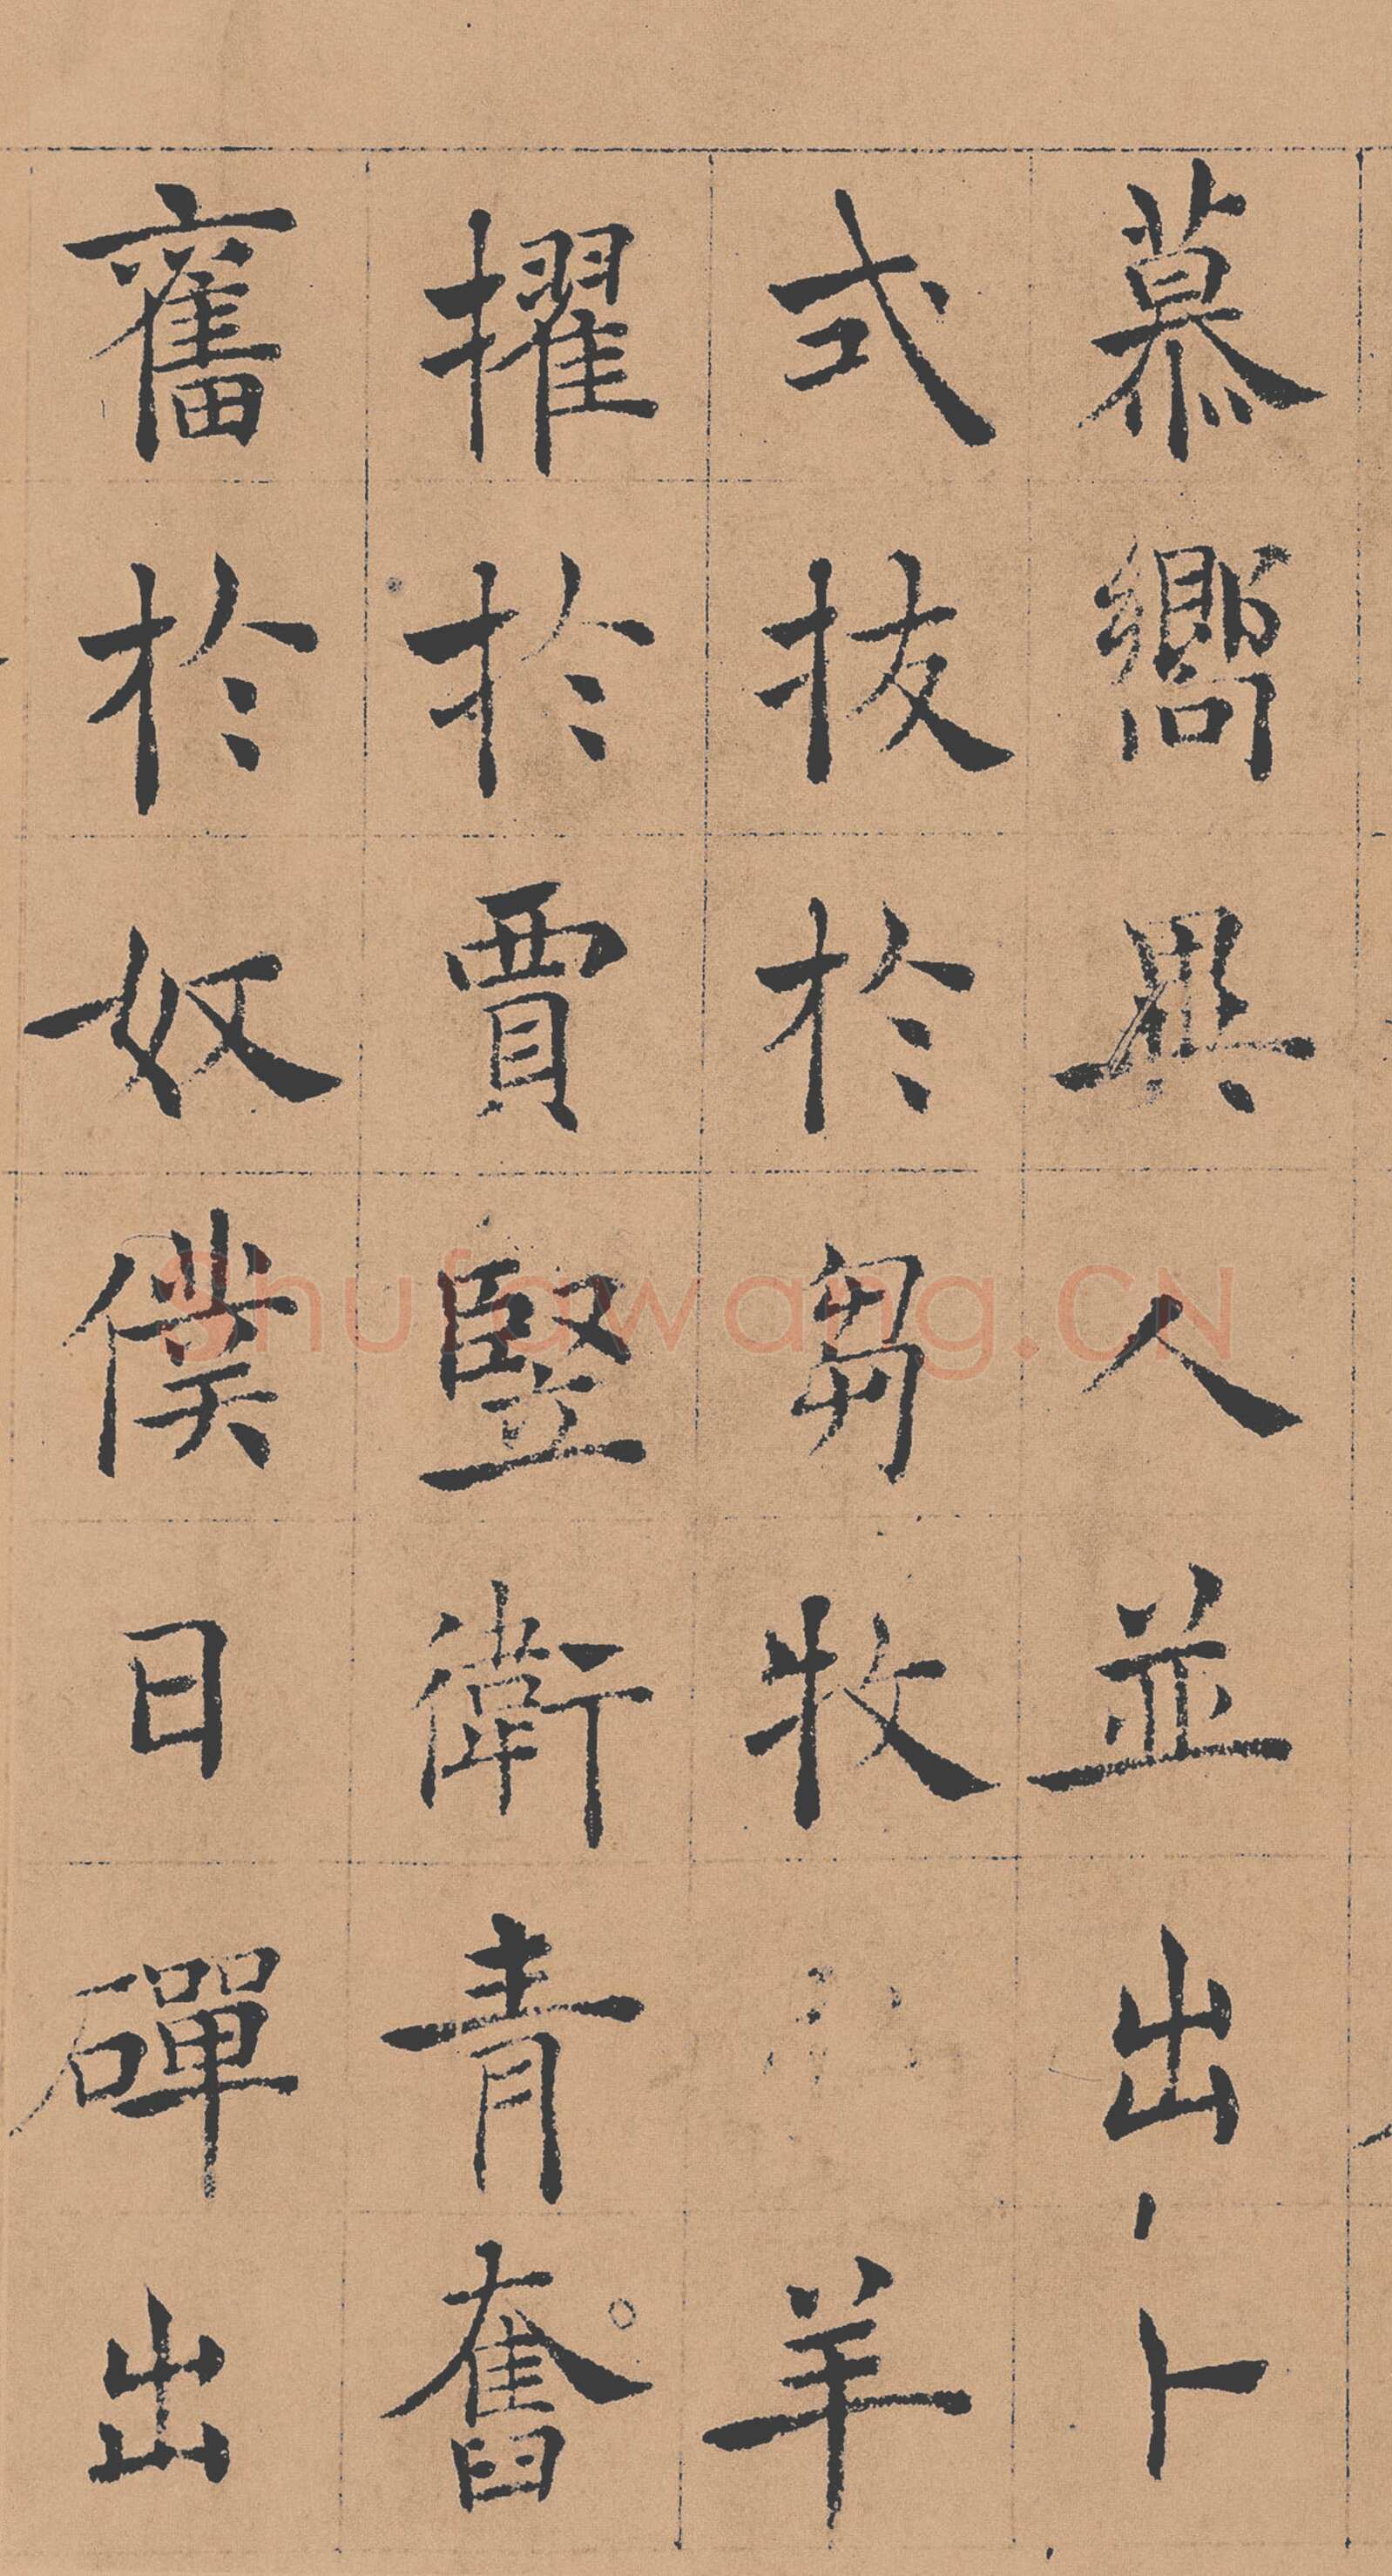 慕嚮異人並出卜
式拔於芻牧羊
擢於賈竪衛青奮
奮於奴僕日磾出
Shufawang.CN